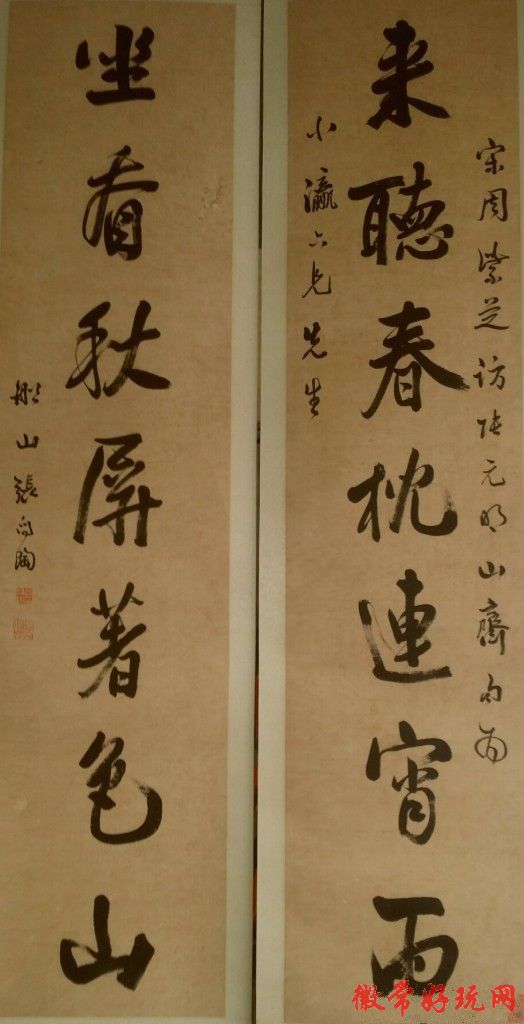 宋周紫芝访张元明山齋句为
来聽春枕連宵雨
小瀛六兄先生
坐看秋屏著色山
船山張问陶
徽常好玩网